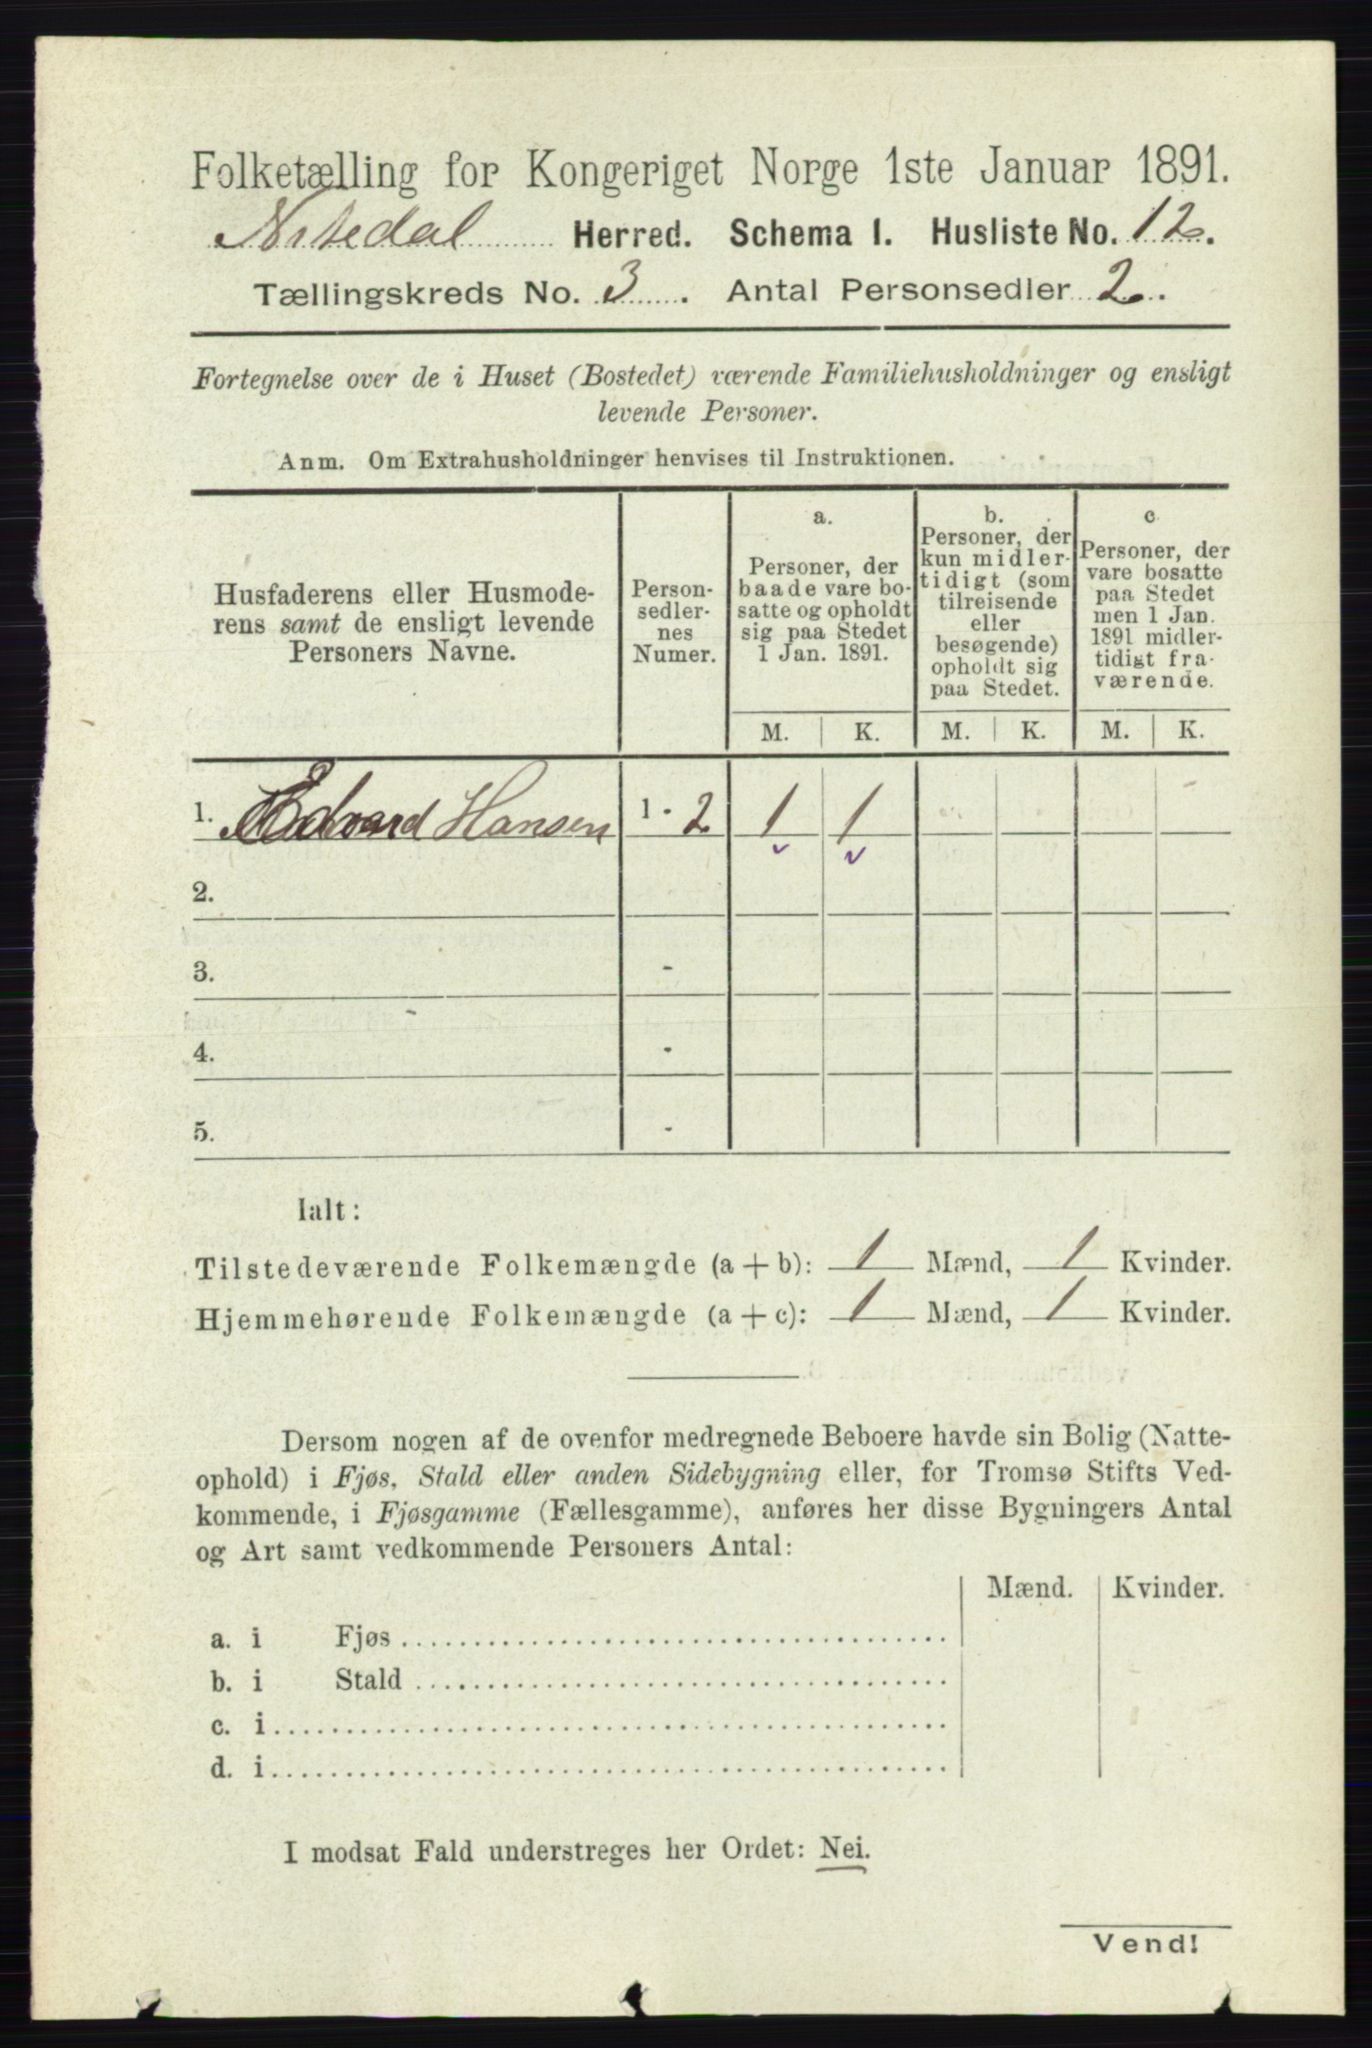 Folketælling for Kongeriget Norge 1ste Januar 1891.
Nissedal Herred. Schema 1. Husliste No. 12.
Tællingskreds No. 3. Antal Personsedler 2.
Fortegnelse over de i Huset (Bostedet) værende Familiehusholdninger og ensligt
levende Personer.
Anm. Om Extrahusholdninger henvises til Instruktionen.
Husfaderens eller Husmode-
rens samt de ensligt levende
Personers Navne.
Person-
sedler-
nes
Numer.
a.
Personer, der
baade vare bo-
satte og opholdt
sig paa Stedet
1 Jan. 1891.
b.
Personer, der
kun midler-
tidigt (som
tilreisende
eller
besøgende)
opholdt sig
paa Stedet.
c
Personer, der
vare bosatte
paa Stedet
men 1 Jan.
1891 midler-
tidigt fra-
værende.
M. K. M. K. M. K.
1. Edvard Hansen 1 - 2 1 1
2.
3. -
4. -
5. -
Ialt:
Tilstedeværende Folkemængde (a + b): 1 Mænd, 1 Kvinder.
Hjemmehørende Folkemængde (a + c): 1 Mænd, 1 Kvinder.
Dersom nogen af de ovenfor medregnede Beboere havde sin Bolig (Natte-
ophold) i Fjøs, Stald eller anden Sidebygning eller, for Tromsø Stifts Ved-
kommende, i Fjøsgamme (Fællesgamme), anføres her disse Bygningers Antal
og Art samt vedkommende Personers Antal:
Mænd. Kvinder.
a. i Fjøs
b. i Stald
c. i
d. i
I modsat Fald understreges her Ordet: Nei.
Vend!